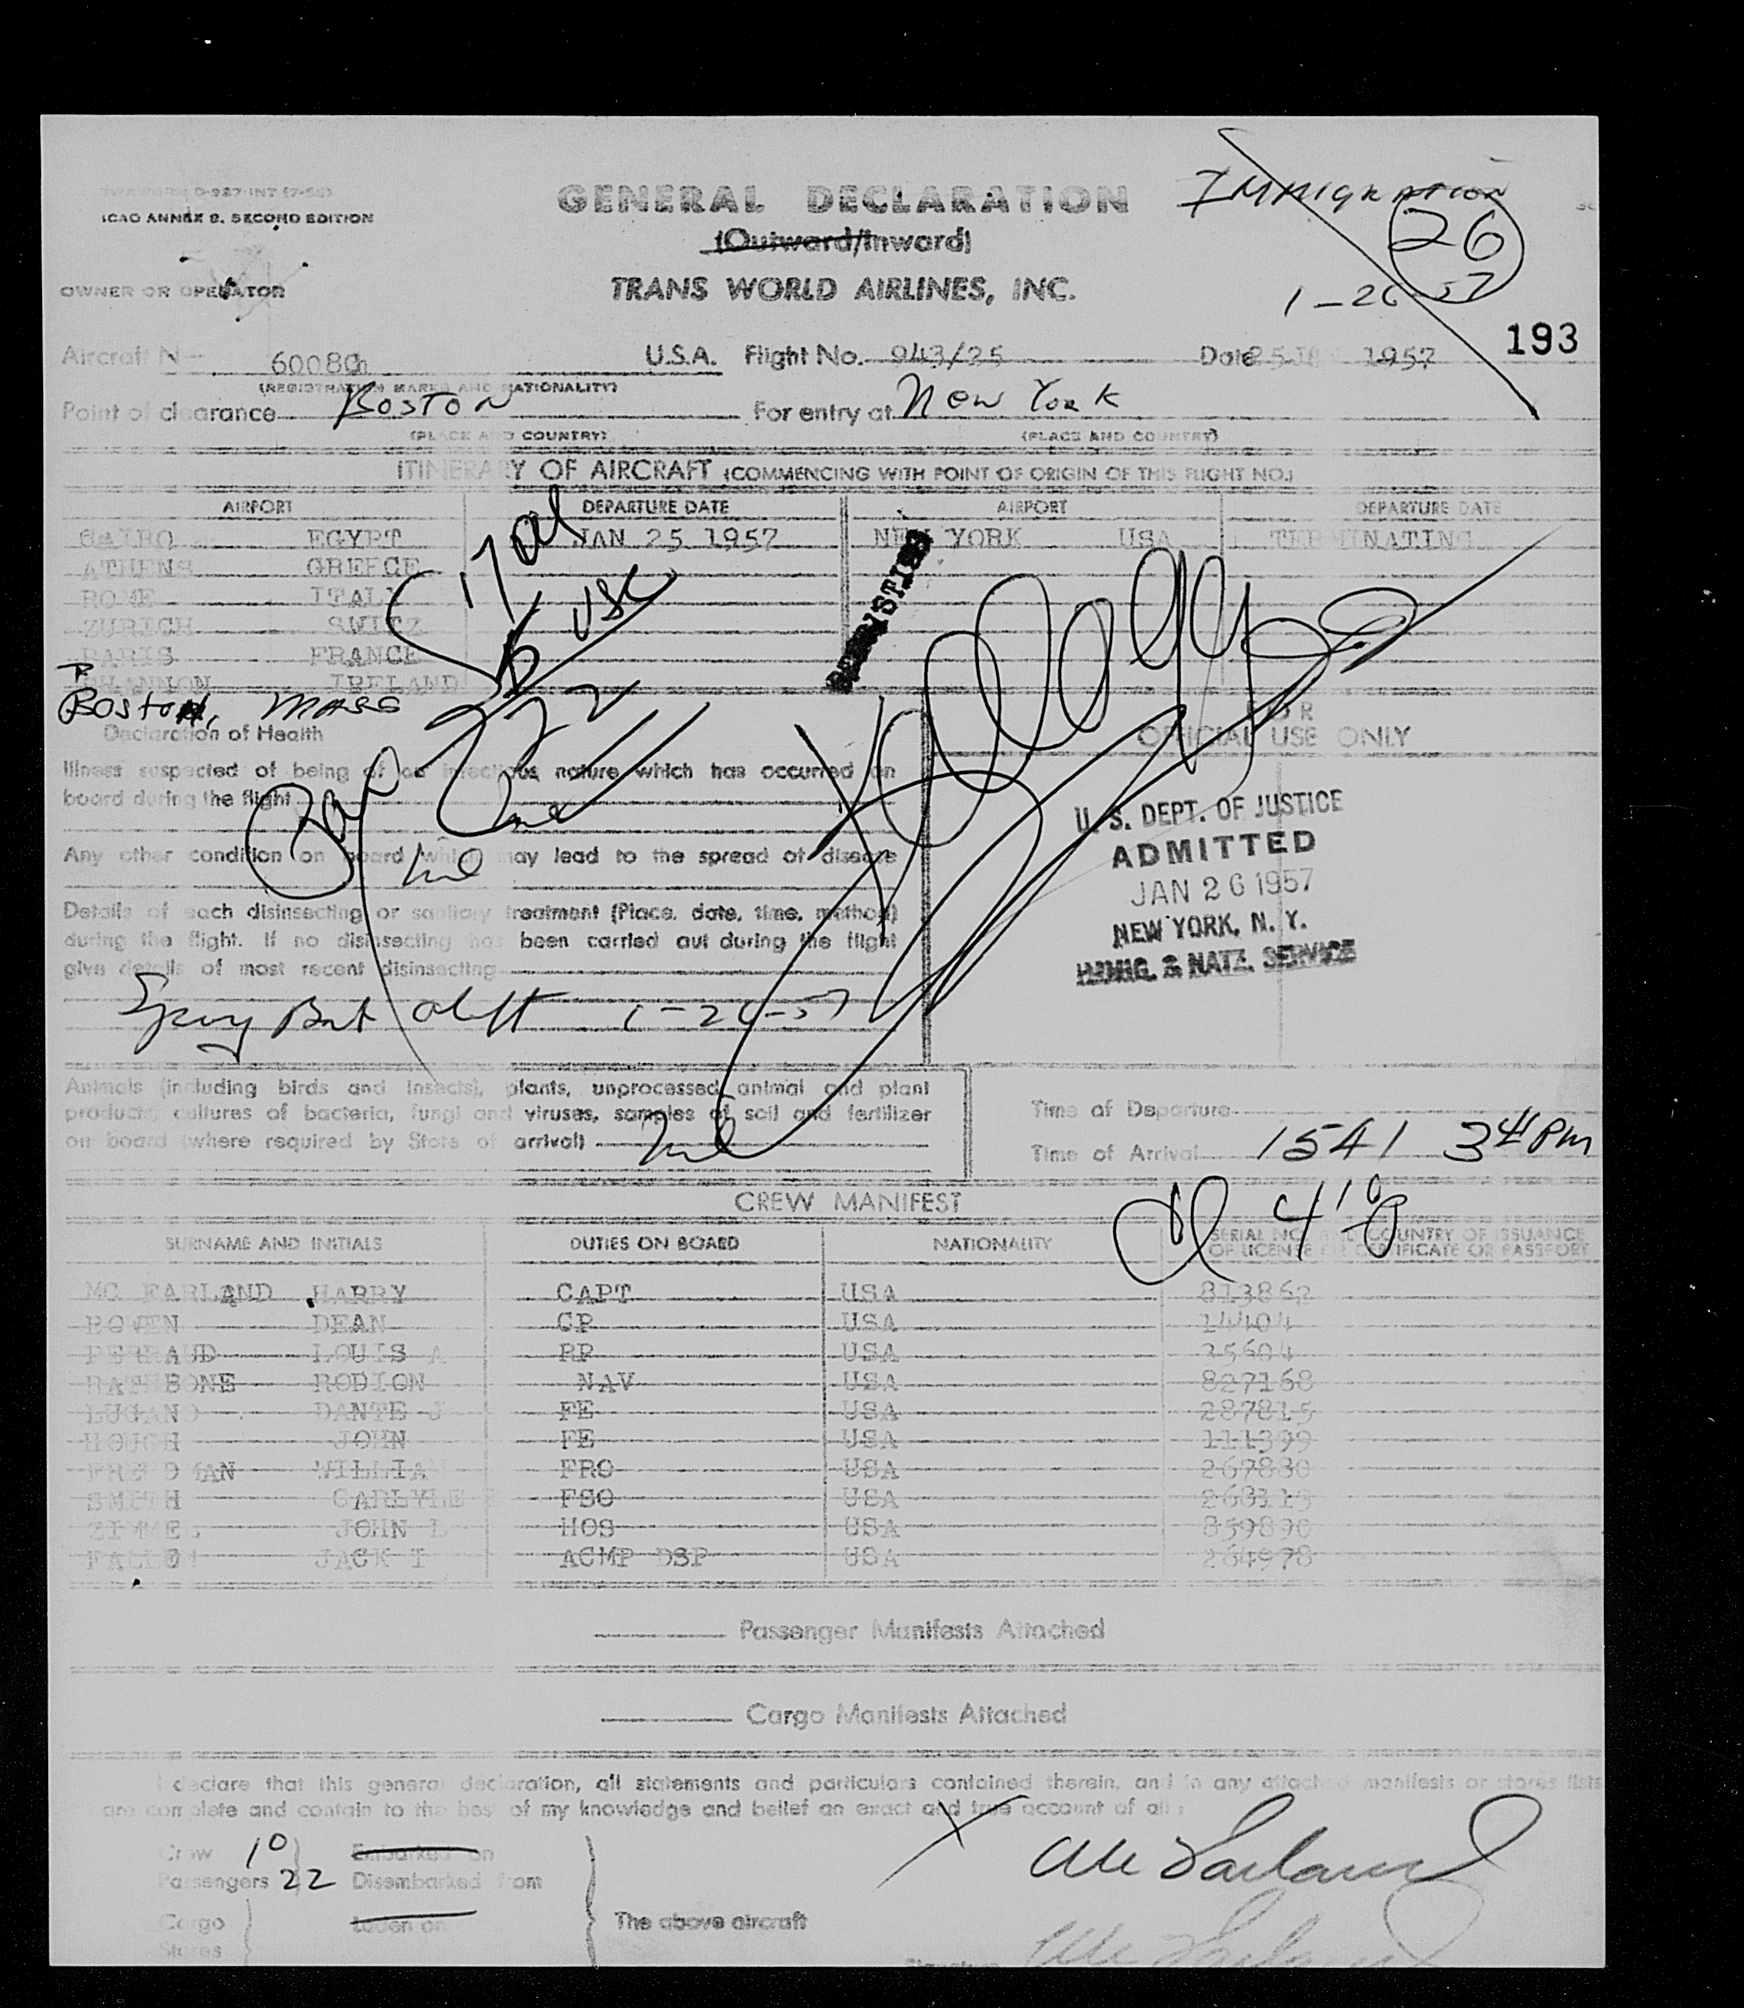 ICAO ANNEX 9, SECOND EDITION
GENERAL DECLARATION
IMMIGRATION
(Outward/Inward)
26
OWNER OR OPERATOR
TRANS WORLD AIRLINES, INC.
1-26-57
193
Aircraft N- 6008 U.S.A. Flight No. 943/25 Date 25 1957
(REGISTRATION MARKS AND NATIONALITY)
Point of clearance BOSTON For entry at New York
(PLACE AND COUNTRY) (PLACE AND COUNTRY)
ITINERARY OF AIRCRAFT (COMMENCING WITH POINT OF ORIGIN OF THIS FLIGHT NO.)
AIRPORT DEPARTURE DATE AIRPORT DEPARTURE DATE
CAIRO EGYPT JAN 25 1957 NEW YORK USA TERMINATING
ATHENS GREECE
ROME ITALY
ZURICH SWITZ
PARIS FRANCE
SHANNON IRELAND
USC
22
Boston, MASS
Declaration of Health
FOR
OFFICIAL USE ONLY
Illness suspected of being of an infectious nature which has occurred on
board during the flight
Any other condition on board which may lead to the spread of disease
Details of each disinsecting or sanitary treatment (Place, date, time, method)
during the flight. If no disinsecting has been carried out during the flight
give details of most recent disinsecting
1-26-57
U. S. DEPT. OF JUSTICE
ADMITTED
JAN 26 1957
NEW YORK, N. Y.
IMMIG. & NATZ. SERVICE
Animals (including birds and insects), plants, unprocessed animal and plant
products, cultures of bacteria, fungi and viruses, samples of soil and fertilizer
on board (where required by State of arrival)
Time of Departure
Time of Arrival 1541 341 Pm
CREW MANIFEST
SURNAME AND INITIALS DUTIES ON BOARD NATIONALITY SERIAL NO. AND COUNTRY OF ISSUANCE
OF LICENSE OR CERTIFICATE OR PASSPORT
MC FARLAND HARRY CAPT USA 813862
BOWEN DEAN CP USA 14404
PERRAUD LOUIS A RP USA 25604
RATHBONE RODION NAV USA 827168
LUGANO DANTE J FE USA 287815
HOUGH JOHN FE USA 111399
FREDMAN WILLIAM FRO USA 267830
SMITH CARLYLE FSO USA
JOHN L HOS USA 859890
FALLON JACK T ACMP DSP USA 264978
Passenger Manifests Attached
Cargo Manifests Attached
I declare that this general declaration, all statements and particulars contained therein, and in any attached manifests or stores lists
are complete and contain to the best of my knowledge and belief an exact and true account of all:
Crew 10 Embarked on
Passengers 22 Disembarked from
Cargo Laden on The above aircraft
Stores
McFarland
Signature McFarland